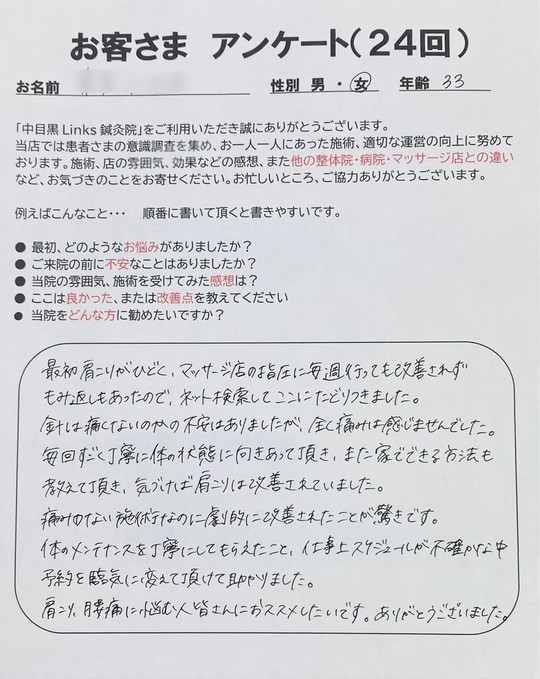 お客さま アンケート（24回）
お名前 性別 男・女 年齢 33
「中目黒 Links 鍼灸院」をご利用いただき誠にありがとうございます。
当店では患者さまの意識調査を集め、お一人一人にあった施術、適切な運営の向上に努めて
おります。施術、店の雰囲気、効果などの感想、また他の整体院・病院・マッサージ店との違い
など、お気づきのことをお寄せください。お忙しいところ、ご協力ありがとうございます。
例えばこんなこと・・・ 順番に書いて頂くと書きやすいです。
● 最初、どのようなお悩みがありましたか？
● ご来院の前に不安なことはありましたか？
● 当院の雰囲気、施術を受けてみた感想は？
● ここは良かった、または改善点を教えてください
● 当院をどんな方に勧めたいですか？
最初肩こりがひどく、マッサージ店の指圧に毎週行っても改善されず
もみ返しもあったので、ネット検索してここにたどりつきました。
針は痛くないのかの不安はありましたが、全く痛みは感じませんでした。
毎回すごく丁寧に体の状態に向きあって頂き、また家でできる方法も
教えて頂き、気づけば肩こりは改善されていました。
痛みのない施術なのに劇的に改善されたことが驚きです。
体のメンテナンスを丁寧にしてもらえたこと、仕事上スケジュールが不確かな中
予約を臨気に変えて頂けて助かりました。
肩こり、腰痛に悩む人皆さんにおススメしたいです。ありがとうございました。